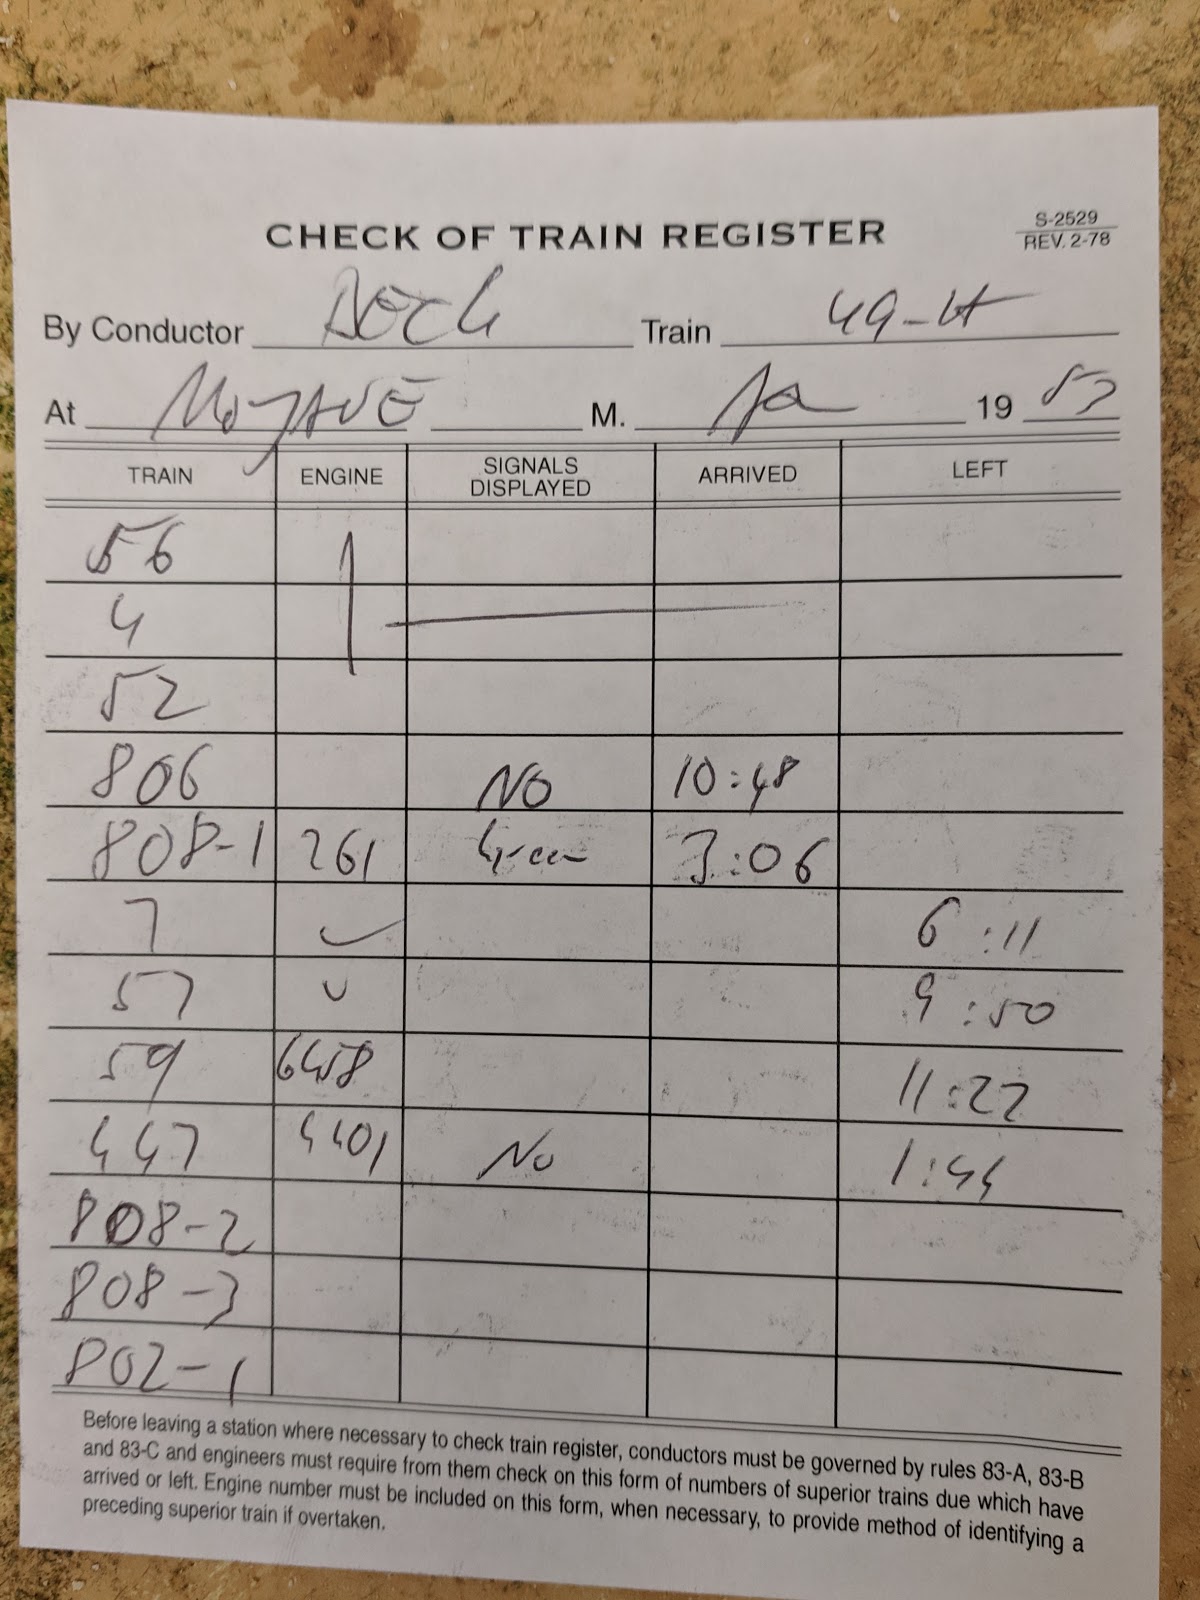 CHECK OF TRAIN REGISTER
S-2529
REV. 2-78
By Conductor Train
At MOJAVE M. 19 53
TRAIN ENGINE SIGNALS DISPLAYED ARRIVED LEFT
56
4
52
806 NO 10:48
808-1 261 Green 3:06
7 ✓ 6:11
57 ✓ 9:50
59 6458 11:22
447 4401 No 1:44
808-2
808-3
802-1
Before leaving a station where necessary to check train register, conductors must be governed by rules 83-A, 83-B
and 83-C and engineers must require from them check on this form of numbers of superior trains due which have
arrived or left. Engine number must be included on this form, when necessary, to provide method of identifying a
preceding superior train if overtaken.